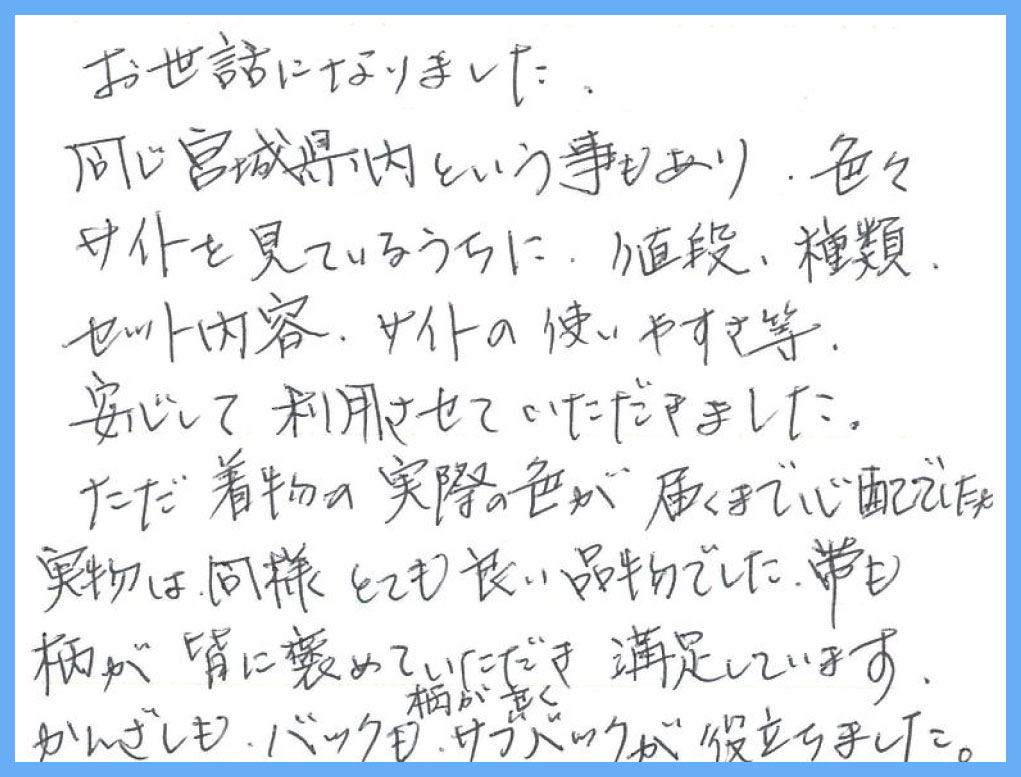 お世話になりました.
同じ宮城県内という事もあり.色々
サイトを見ているうちに.値段、種類.
セット内容.サイトの使いやすさ等.
安心して利用させていただきました。
ただ着物の実際の色が届くまで心配でしたが
実物は.同様とても良い品物でした.帯も
柄が皆に褒めていただき満足しています.
柄が無く
かんざしも.バックも.サブバックが役立ちました。